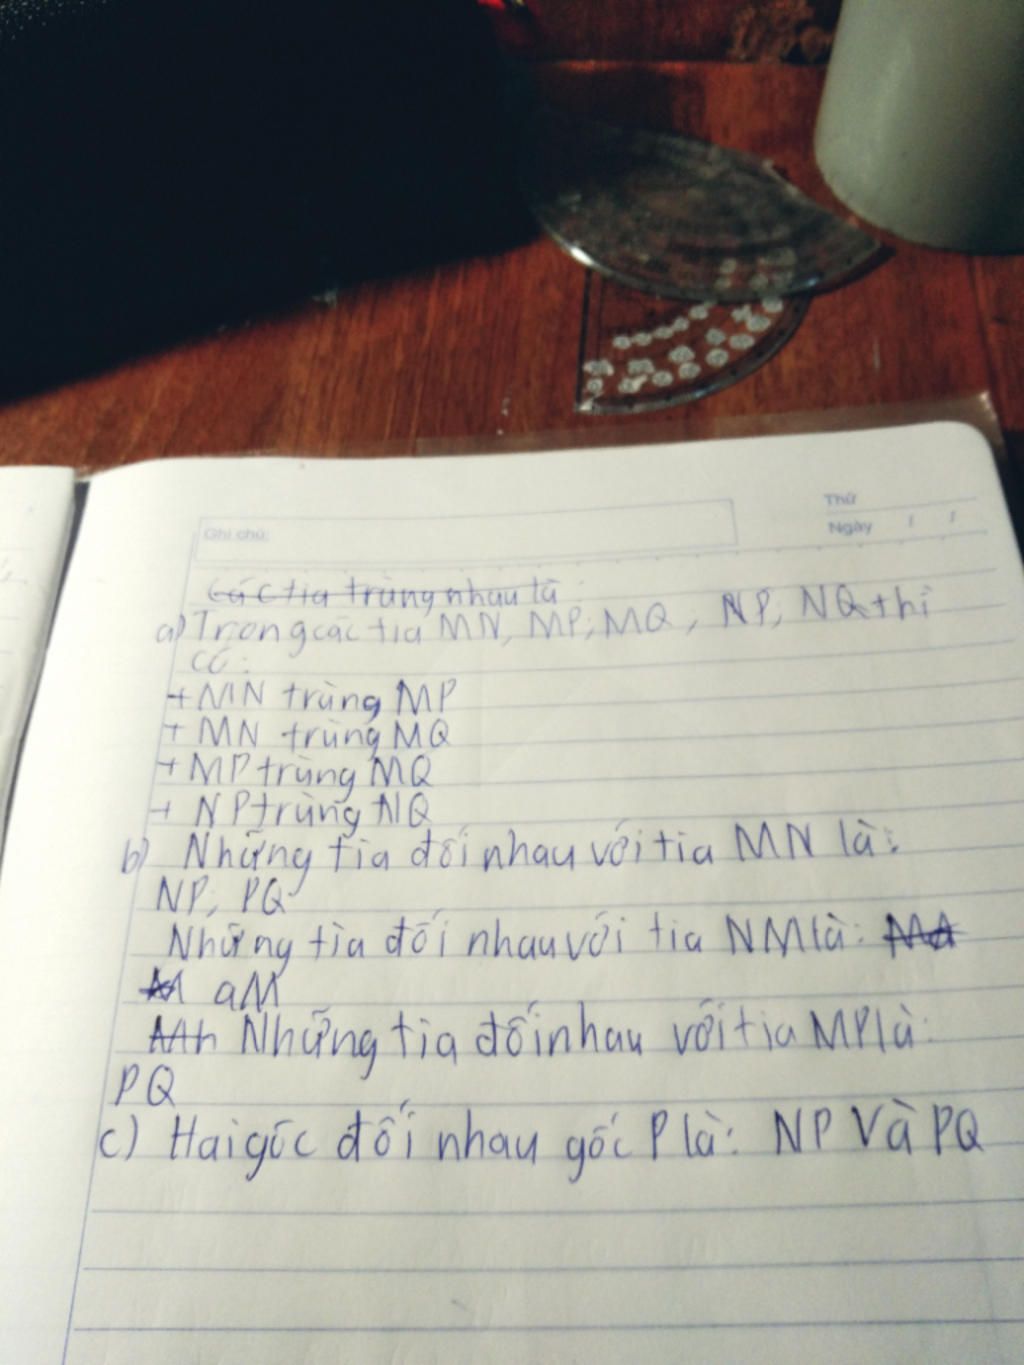 Ghi chú:
Thứ
Ngày / /
Các tia trùng nhau là:
a) Trong các tia MN, MP, MQ, NP, NQ thì
có:
+ MN trùng MP
+ MN trùng MQ
+ MP trùng MQ
+ NP trùng NQ
b) Những tia đối nhau với tia MN là:
NP, PQ
Những tia đối nhau với tia NM là:
aM
Những tia đối nhau với tia MP là:
PQ
c) Hai góc đối nhau gốc P là: NP Và PQ